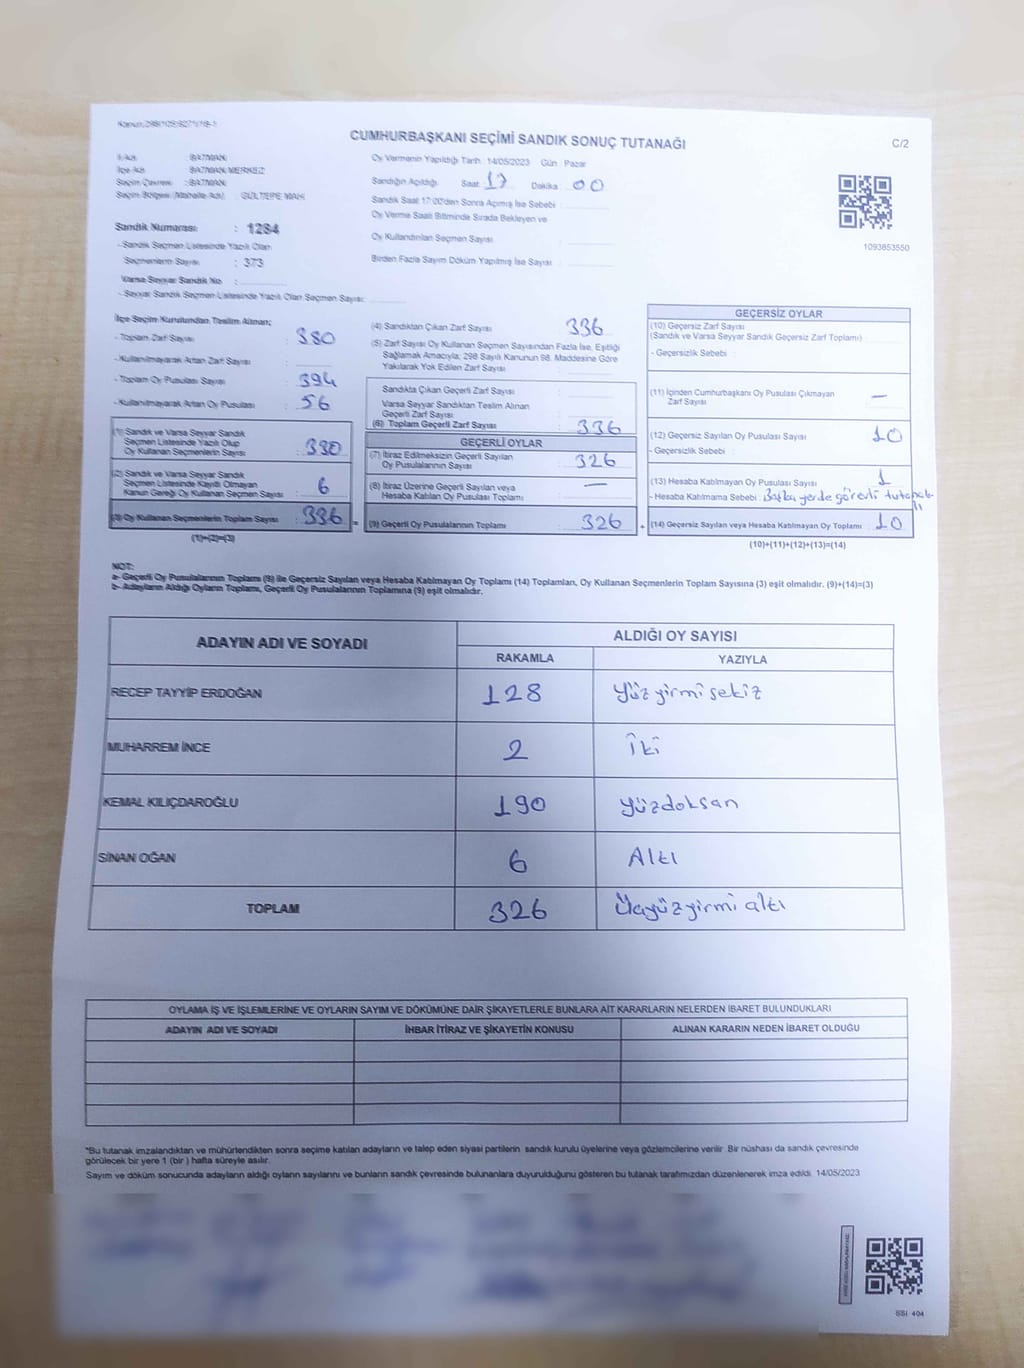 Kanun:298/105;6271/18-1
CUMHURBAŞKANI SEÇİMİ SANDIK SONUÇ TUTANAĞI
C/2
İl Adı : BATMAN
İlçe Adı : BATMAN MERKEZ
Seçim Çevresi : BATMAN
Seçim Bölgesi (Mahalle Adı) : GÜLTEPE MAH.
Sandık Numarası : 1284
- Sandık Seçmen Listesinde Yazılı Olan
Seçmenlerin Sayısı : 373
Varsa Seyyar Sandık No :
- Seyyar Sandık Seçmen Listesinde Yazılı Olan Seçmen Sayısı:
Oy Vermenin Yapıldığı Tarih :14/05/2023 Gün : Pazar
Sandığın Açıldığı Saat: 17 Dakika : 00
Sandık Saat 17:00'den Sonra Açılmış İse Sebebi :
Oy Verme Saati Bitiminde Sırada Bekleyen ve
Oy Kullandırılan Seçmen Sayısı :
Birden Fazla Sayım Döküm Yapılmış İse Sayısı :
1093853550
İlçe Seçim Kurulundan Teslim Alınan;
- Toplam Zarf Sayısı : 380
- Kullanılmayarak Artan Zarf Sayısı :
- Toplam Oy Pusulası Sayısı : 394
- Kullanılmayarak Artan Oy Pusulası : 56
(1) Sandık ve Varsa Seyyar Sandık
Seçmen Listesinde Yazılı Olup
Oy Kullanan Seçmenlerin Sayısı : 330
(2) Sandık ve Varsa Seyyar Sandık
Seçmen Listesinde Kayıtlı Olmayan
Kanun Gereği Oy Kullanan Seçmen Sayısı : 6
(3) Oy Kullanan Seçmenlerin Toplam Sayısı : 336
(1)+(2)=(3)
(4) Sandıktan Çıkan Zarf Sayısı : 336
(5) Zarf Sayısı Oy Kullanan Seçmen Sayısından Fazla İse, Eşitliği
Sağlamak Amacıyla; 298 Sayılı Kanunun 98. Maddesine Göre
Yakılarak Yok Edilen Zarf Sayısı :
Sandıkta Çıkan Geçerli Zarf Sayısı :
Varsa Seyyar Sandıktan Teslim Alınan
Geçerli Zarf Sayısı :
(6) Toplam Geçerli Zarf Sayısı : 336
GEÇERLİ OYLAR
(7) İtiraz Edilmeksizin Geçerli Sayılan
Oy Pusulalarının Sayısı : 326
(8) İtiraz Üzerine Geçerli Sayılan veya
Hesaba Katılan Oy Pusulası Toplamı : —
= (9) Geçerli Oy Pusulalarının Toplamı : 326
GEÇERSİZ OYLAR
(10) Geçersiz Zarf Sayısı
(Sandık ve Varsa Seyyar Sandık Geçersiz Zarf Toplamı)
- Geçersizlik Sebebi :
(11) İçinden Cumhurbaşkanı Oy Pusulası Çıkmayan
Zarf Sayısı : —
(12) Geçersiz Sayılan Oy Pusulası Sayısı : 10
- Geçersizlik Sebebi :
(13) Hesaba Katılmayan Oy Pusulası Sayısı : 1
- Hesaba Katılmama Sebebi : Başka yerde görevli tutanak
lı
+ (14) Geçersiz Sayılan veya Hesaba Katılmayan Oy Toplamı : 10
(10)+(11)+(12)+(13)=(14)
NOT:
a- Geçerli Oy Pusulalarının Toplamı (9) ile Geçersiz Sayılan veya Hesaba Katılmayan Oy Toplamı (14) Toplamları, Oy Kullanan Seçmenlerin Toplam Sayısına (3) eşit olmalıdır. (9)+(14)=(3)
b- Adayların Aldığı Oyların Toplamı, Geçerli Oy Pusulalarının Toplamına (9) eşit olmalıdır.
ADAYIN ADI VE SOYADI
ALDIĞI OY SAYISI
RAKAMLA YAZIYLA
RECEP TAYYİP ERDOĞAN 128 Yüz yirmi sekiz
MUHARREM İNCE 2 İki
KEMAL KILIÇDAROĞLU 190 yüzdoksan
SİNAN OĞAN 6 Altı
TOPLAM 326 Üçyüzyirmi altı
OYLAMA İŞ VE İŞLEMLERİNE VE OYLARIN SAYIM VE DÖKÜMÜNE DAİR ŞİKAYETLERLE BUNLARA AİT KARARLARIN NELERDEN İBARET BULUNDUKLARI
ADAYIN ADI VE SOYADI İHBAR İTİRAZ VE ŞİKAYETİN KONUSU ALINAN KARARIN NEDEN İBARET OLDUĞU
*Bu tutanak imzalandıktan ve mühürlendikten sonra seçime katılan adayların ve talep eden siyasi partilerin sandık kurulu üyelerine veya gözlemcilerine verilir. Bir nüshası da sandık çevresinde
görülecek bir yere 1 (bir ) hafta süreyle asılır.
Sayım ve döküm sonucunda adayların aldığı oyların sayılarını ve bunların sandık çevresinde bulunanlara duyurulduğunu gösteren bu tutanak tarafımızdan düzenlenerek imza edildi. 14/05/2023
SSI 404